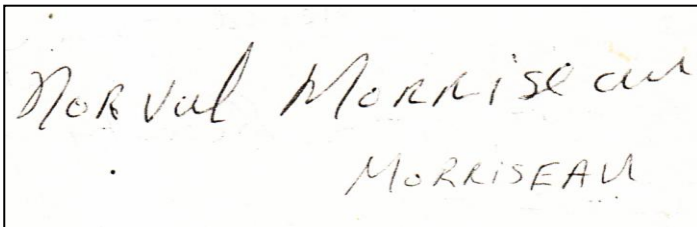 Norval Morriseau
MORRISEAU